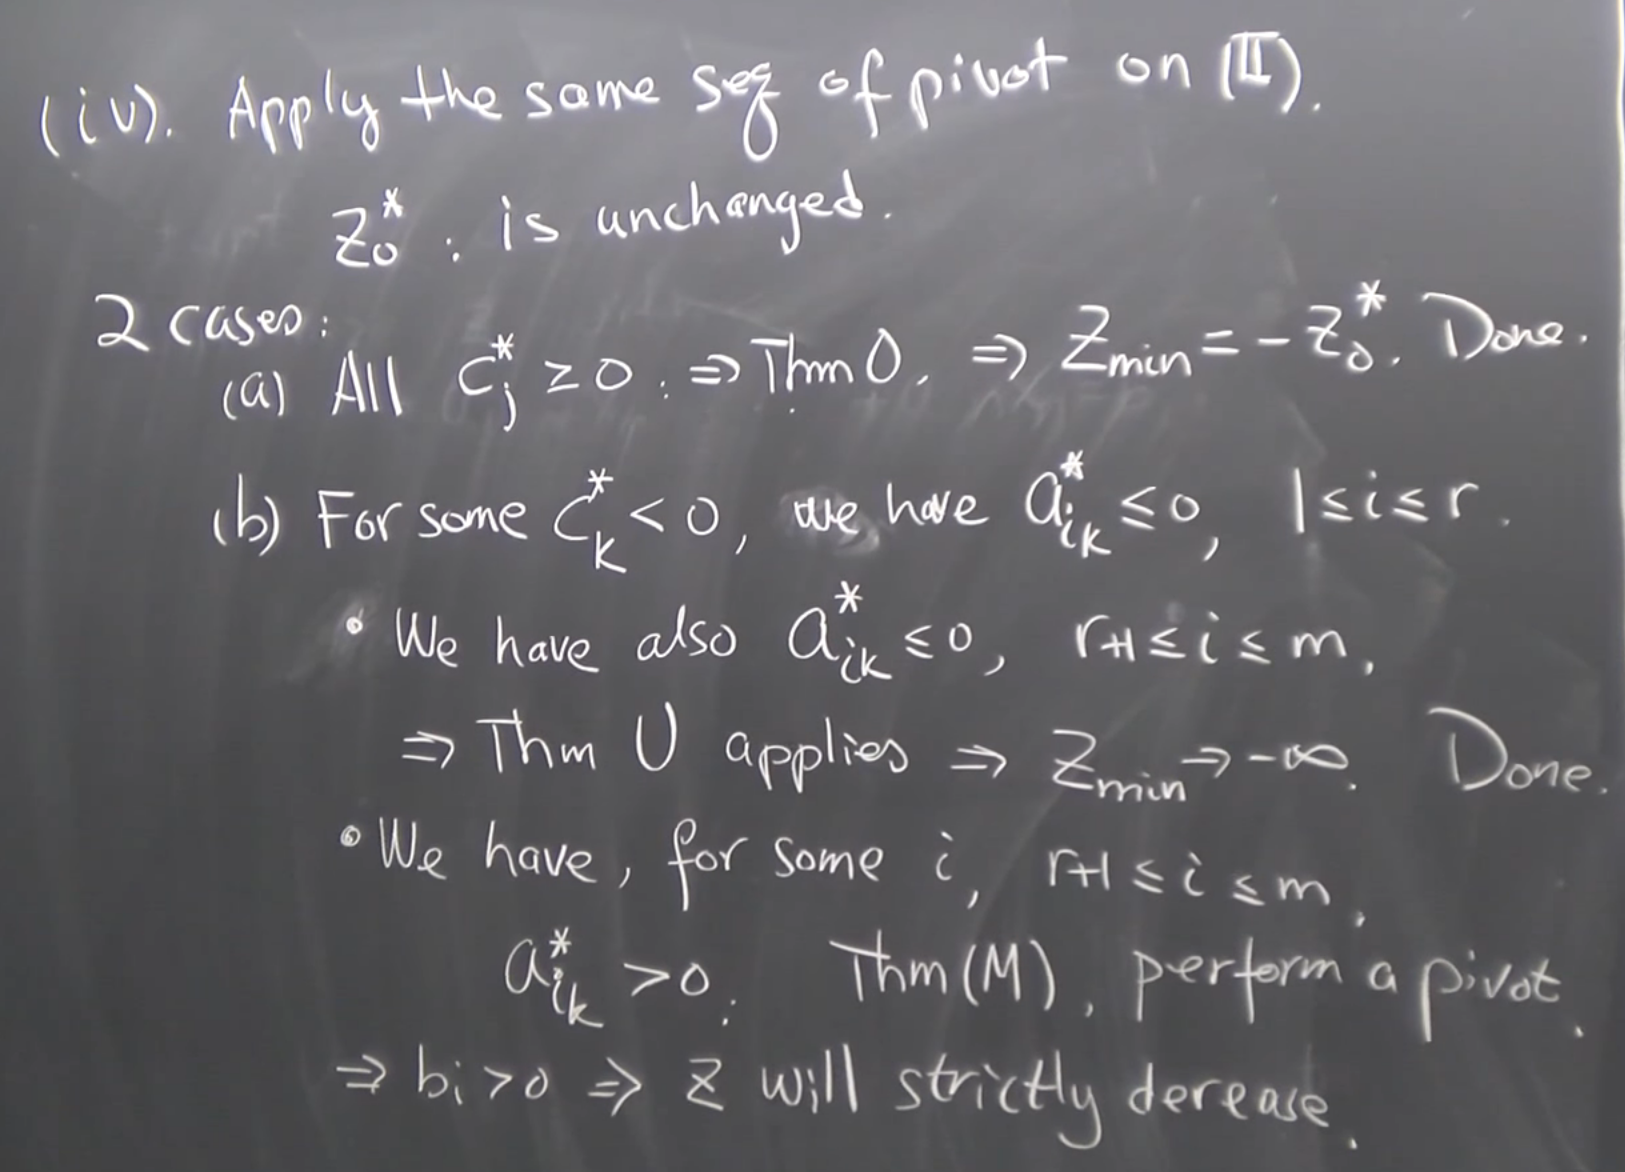 (iv). Apply the same seq of pivot on (II).
Z₀* : is unchanged.
2 cases:
(a) All cⱼ* ≥ 0 : ⇒ Thm O. ⇒ Zmin = -Z₀*. Done.
(b) For some c_k* < 0, we have a_ik* ≤ 0, 1 ≤ i ≤ r.
• We have also a_ik* ≤ 0, r+1 ≤ i ≤ m,
⇒ Thm U applies ⇒ Zmin → -∞. Done.
• We have, for some i, r+1 ≤ i ≤ m,
a_ik* > 0. Thm (M), perform a pivot.
⇒ bᵢ > 0 ⇒ Z will strictly derease.